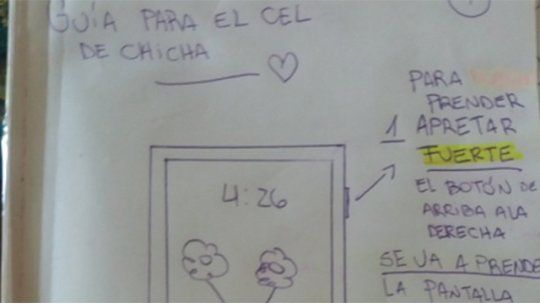 GUÍA PARA EL CEL
DE CHICHA
1
PARA
PRENDER
1 APRETAR
FUERTE
EL BOTÓN DE
ARRIBA A LA
DERECHA
SE VA A PRENDE
LA PANTALLA
4:26